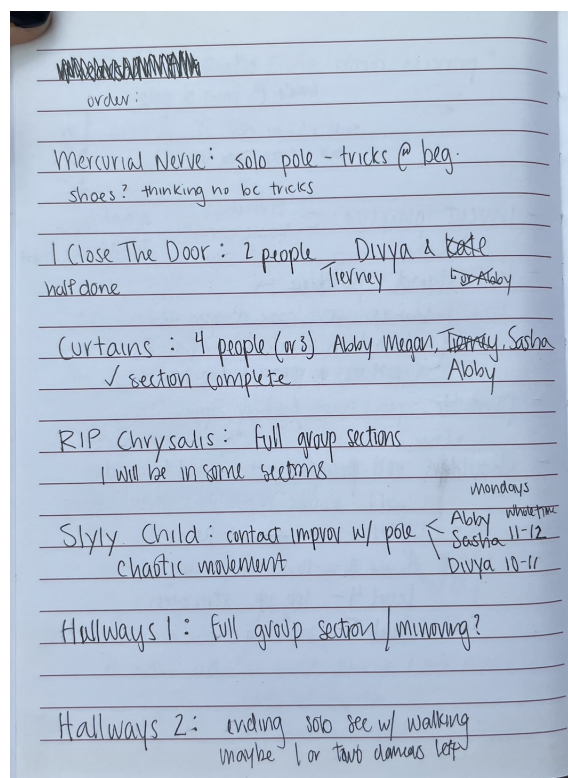 order:
Mercurial Nerve: solo pole - tricks @ beg.
shoes? thinking no bc tricks
I Close The Door: 2 people Divya & Kate
half done Tierney or Abby
Curtains: 4 people (or 3) Abby Megan, Tierney, Sasha
✓ section complete Abby
RIP Chrysalis: Full group sections
I will be in some sections
mondays
Slyly Child: contact improv w/ pole < Abby whole time
Sasha 11-12
chaotic movement \ Divya 10-11
Hallways 1: Full group section / mirroring?
Hallways 2: ending solo sec w/ walking
maybe 1 or two dancers left